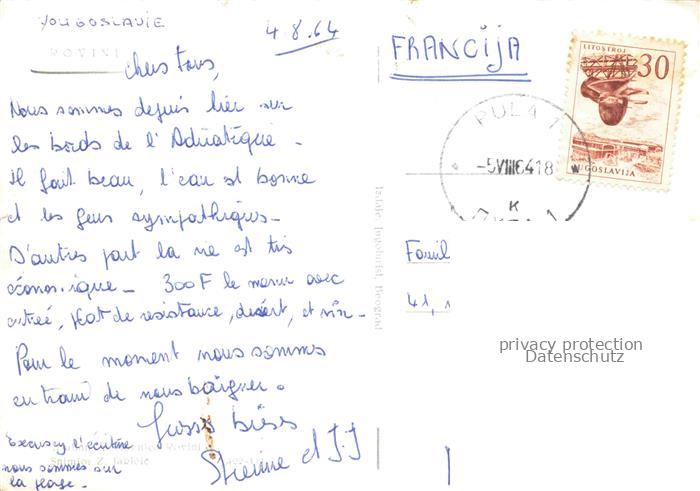 YOUGOSLAVIE
4.8.64
ROVINJ
chers tous,
Nous sommes depuis hier sur
les bords de l'Adriatique -
il fait beau, l'eau est bonne
et les gens sympathiques -
D'autres part la vie est très
économique - 300F le menu avec
entrée, plat de résistance, désert, et vin -
Pour le moment nous sommes
en train de nous baigner.
Grosses bises
Excusez l'écriture
nous sommes sur
la plage.
et J.J
Snimio Z.
Jugoturist, Beograd
FRANCIJA
LITOSTROJ
30
JUGOSLAVIJA
PULA 1
-5VIII6418
K
Famil
41, 
privacy protection
Datenschutz